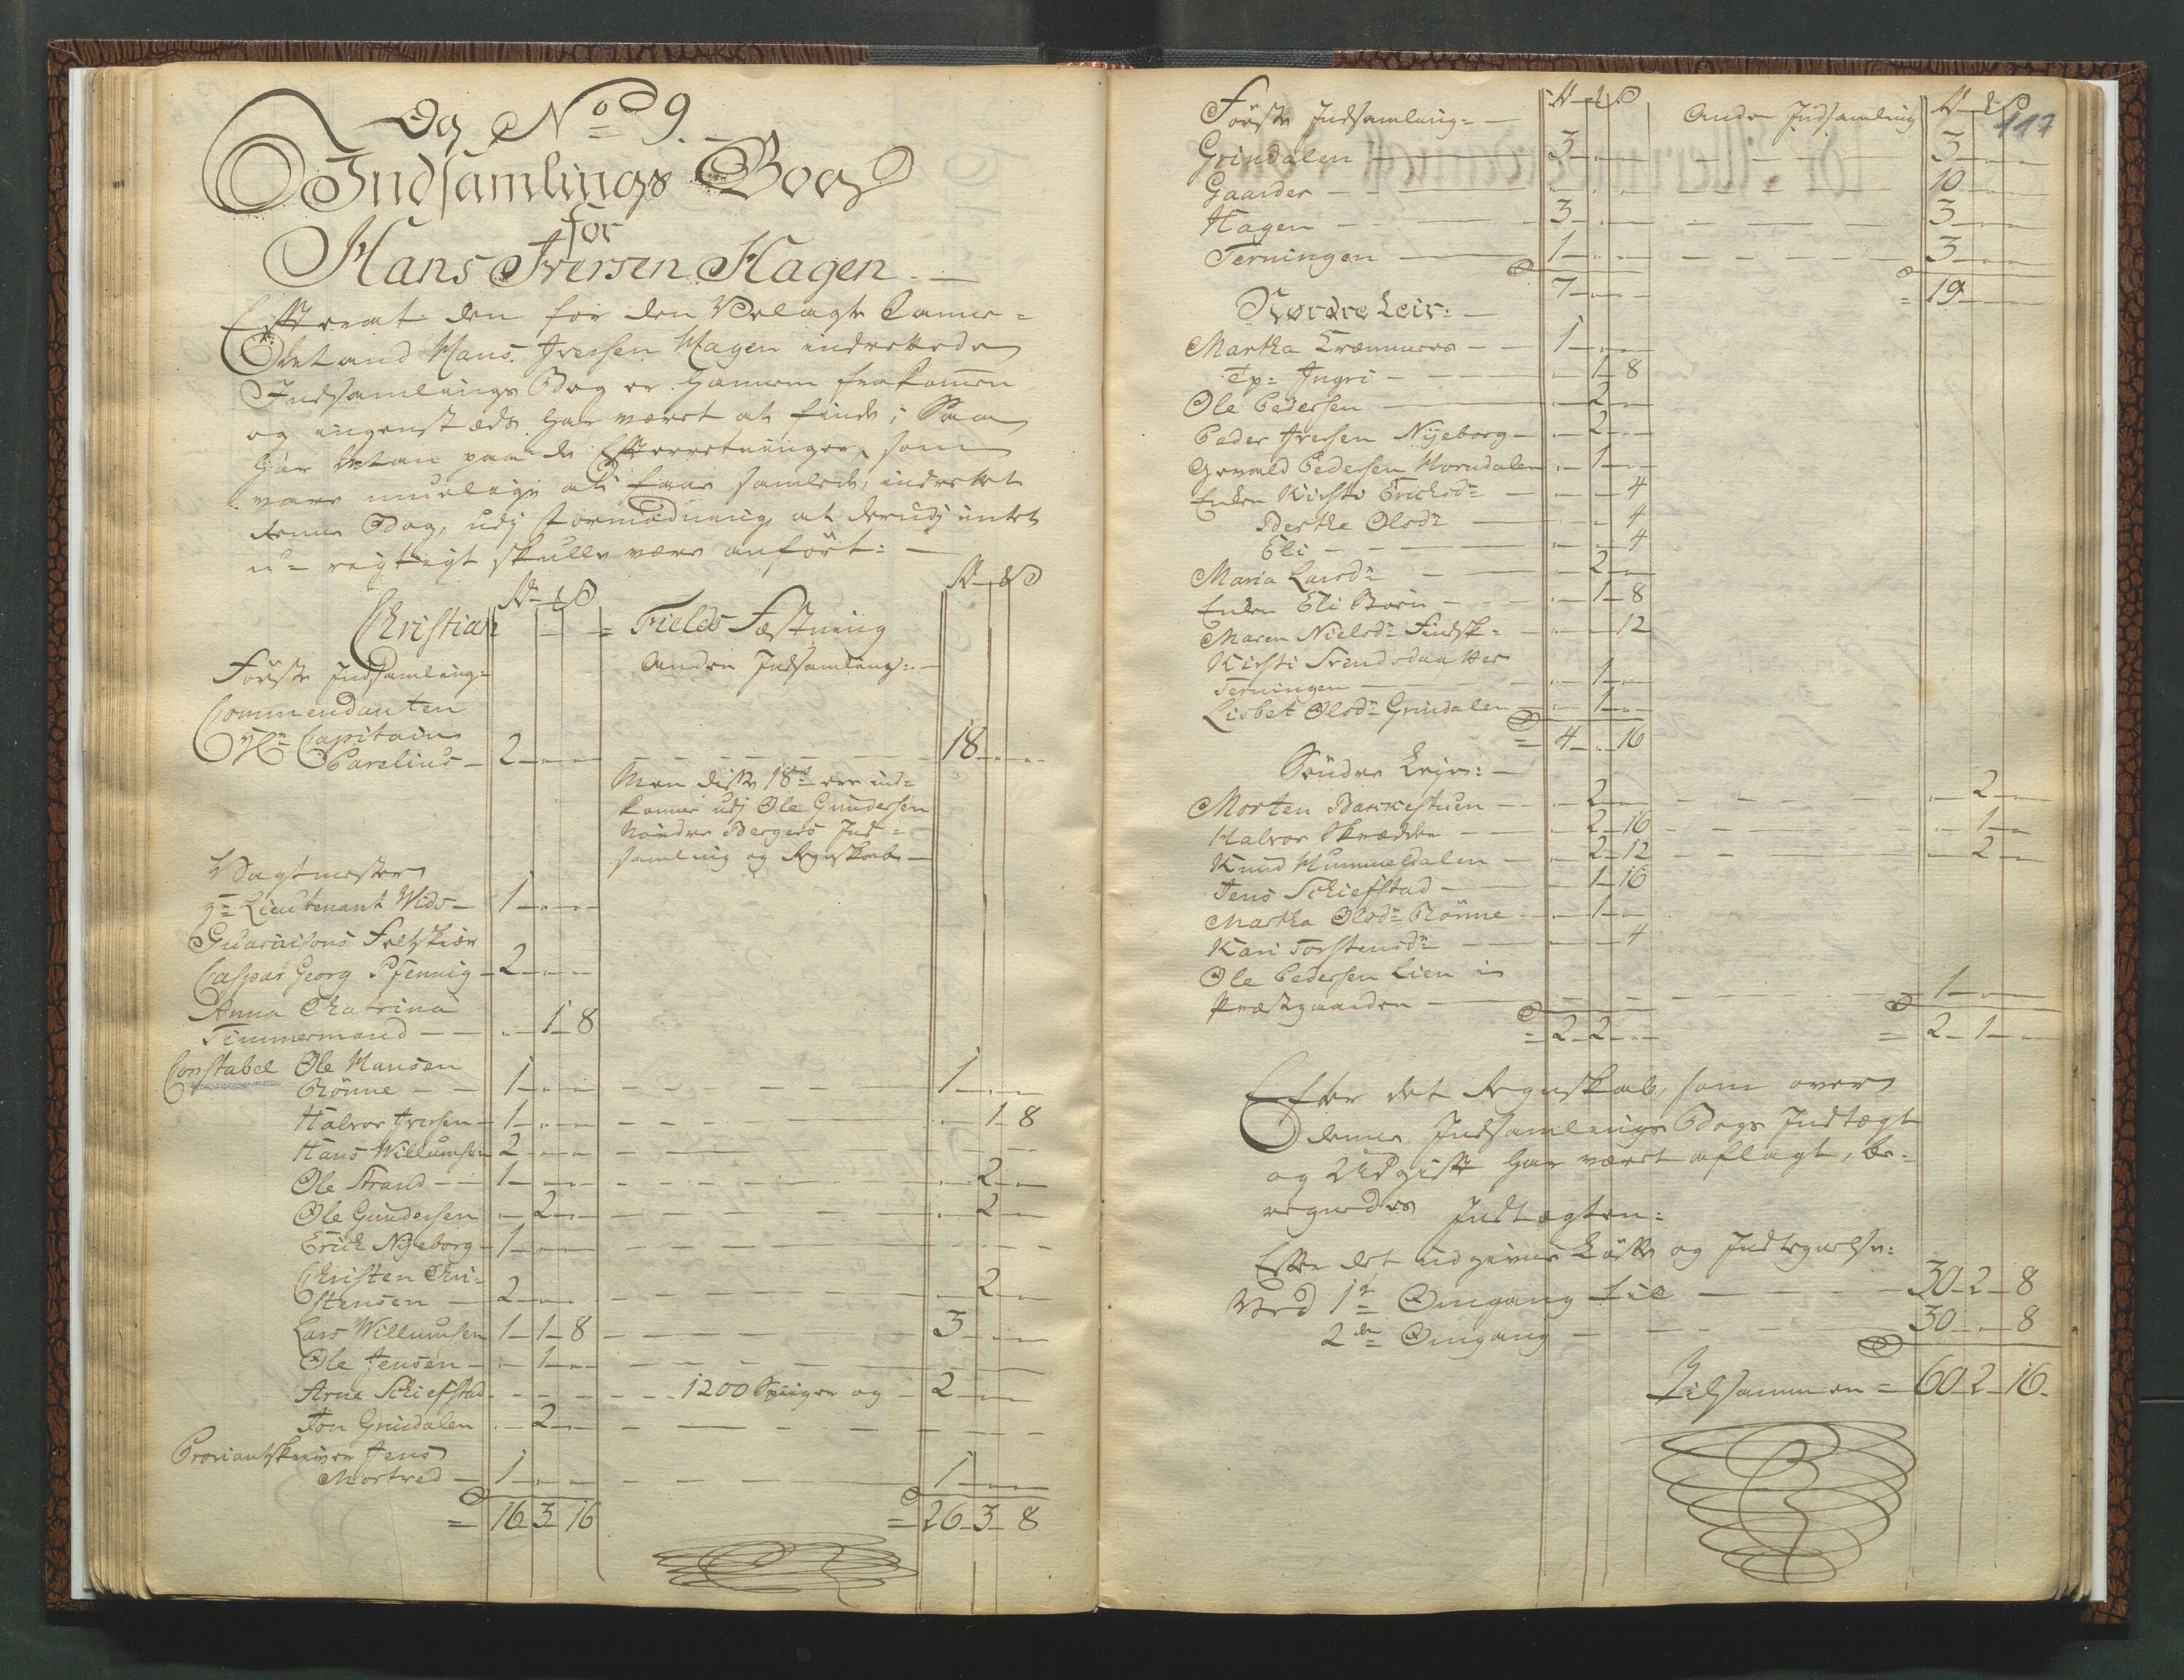 Og No 9.
Indsamlings Bog
for
Hans Iversen Hagen.
Efterat den for den Velagte Camme-
 Hans Iversen Hagen indrettede
Indsamlings Bog er hannem frakommen
og ingenstæds har været at finde; Saa
har man paa de Efterretninger, som
vare muelige at faae samlede, indrettet
denne Bog, udj Formodning at derudj intet
u-rigtigt skulle være anført:
Christians Fields Festning
Första Indsamling: Anden Indsamling:
Commendanten
Hr Capitain
Parelius 2 18
Men disse 18 ere ind-
komne udj Ole Gundersen
Nordre Bergers Ind-
samling og Regnskab
Vagtmester
Lieutenant Wids 1
Guarnisons Feltskiær
Caspar Georg Pfennig 2
Anna Chatrina
Timmermand 1 8
Constabel Ole Hansen
Rönne 1 1
Halvor Iversen 1 1 8
Hans Willumsen 2
Ole Strand 1 2
Ole Gundersen 2 2
Erich Nyeborg 1
Christen Chri-
stensen 2 2
Lars Willumsen 1 1 8 3
Ole Jensen 1
Arne Schiefstad 1200 Spiger og 2
Jon Grindalen 2
Proviantskriver Jens
Mortved 1 1
= 16 3 16 = 26 3 8
117
Förste Indsamling: Anden Indsamling
Grindalen 3 3
Gaarder 10
Hagen 3 3
Terningen 1 3
7 = 19
Nordre Leir:
Martha Cræmmers 1
Ingri 1 8
Ole Pedersen 2
Peder Iversen Nyeborg 2
Pedersen Horndalen 1
Enken Kirsti Erichsdr 4
Berthe Olsdr 4
Eli 4
Maria Larsdr 2
Enken Eli Born 1 8
Maren Nielsdr 12
Kirsti Svendsdaatter
Terningen 1
Lisbet Olsdr Grindalen 1
= 4 16
Söndre Leir:
Morten Bakkestuen 2 2
Halvor Skrædder 2 16 1
Knud Hummeldalen 2 12 2
Jens Schiefstad 1 16
Martha Olsdr Rönne 1
Kari Torstensdr 4
Ole Pedersen Lien i
Præstgaarden 1
= 2 2 = 2 1
Efter det Regnskab, som over
denne Indsamlings Bogs Indtægt
og Udgift har været aflagt, be-
regnedes Indtægten:
Efter det udgivne Löfte og Indtegnelse:
Ved 1te Omgang til 30 2 8
2den Omgang 30 8
Tilsammen = 60 2 16